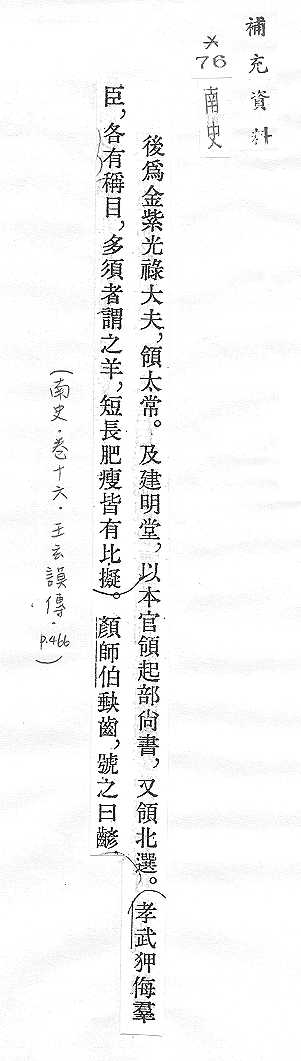 補充資料
*76
南史
後爲金紫光祿大夫，領太常。及建明堂，以本官領起部尙書，又領北選。（孝武狎侮羣
臣，各有稱目，多須者謂之羊，短長肥瘦皆有比擬）。顏師伯缺齒，號之曰齴，
（南史·卷十六·王玄謨傳·p.466）